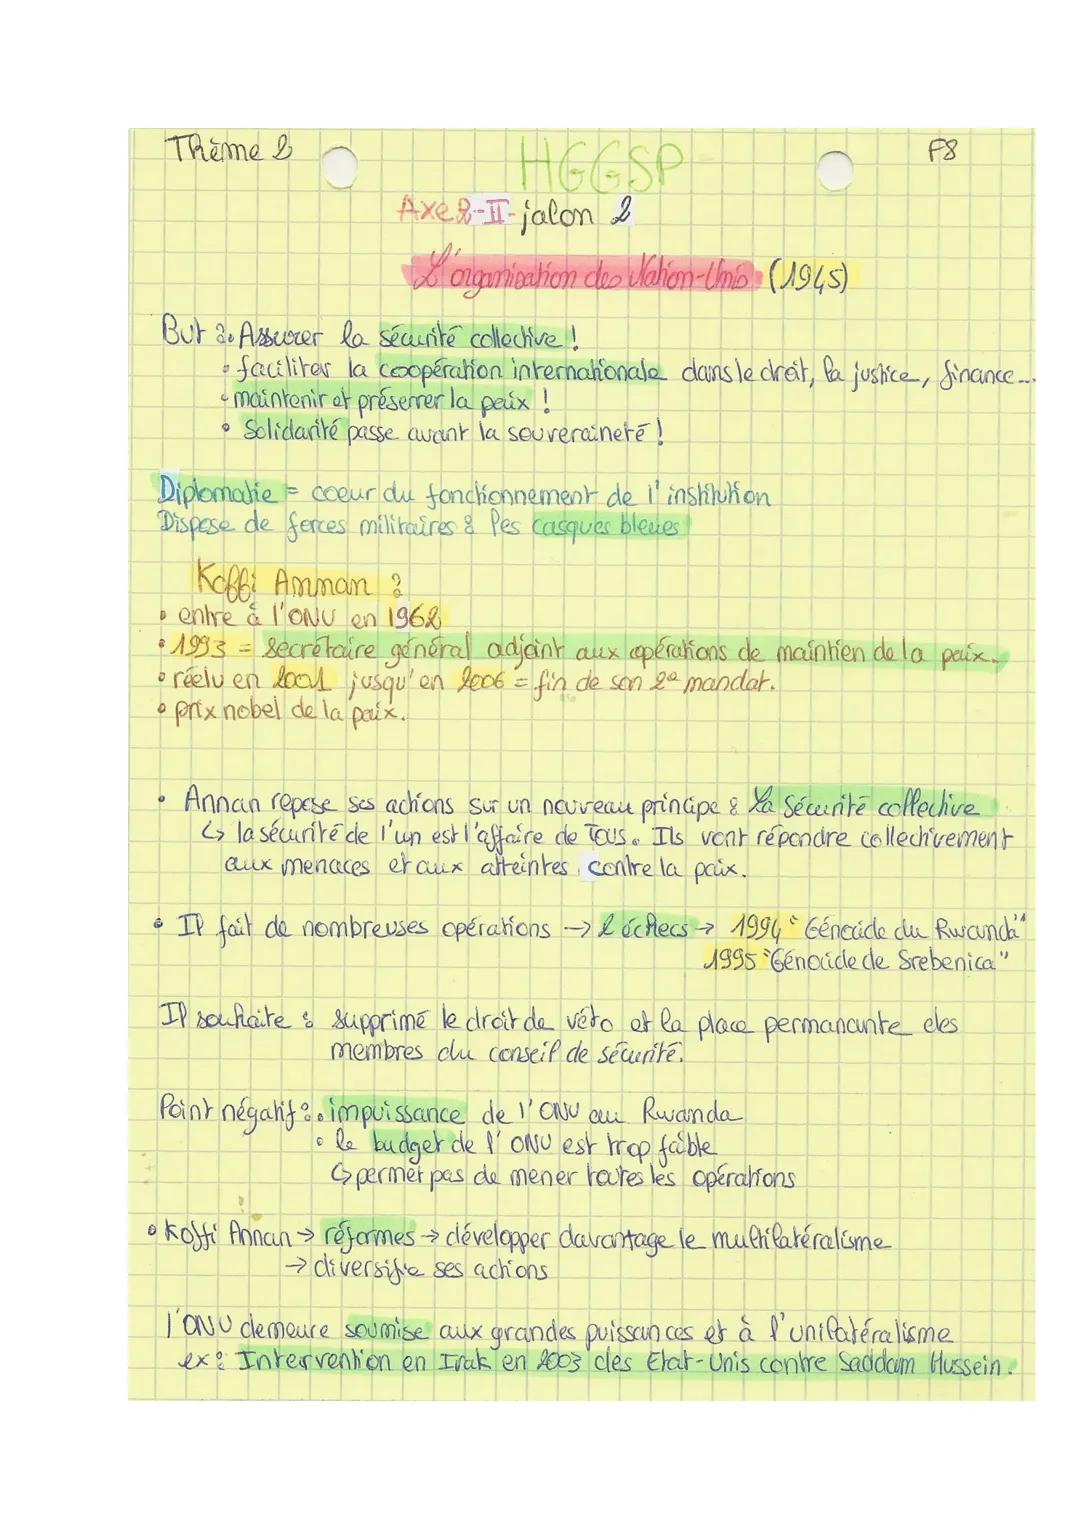 Thème 2
HGGSP
F8
Axe 2-II-jalon 2
L'organisation des Nation-Unis (1945)
But : • Assurer la sécurité collective !
• faciliter la coopération internationale dans le droit, la justice, finance...
• maintenir et préserver la paix !
• Solidarité passe avant la souveraineté !
Diplomatie = coeur du fonctionnement de l'institution
Dispose de forces militaires : les casques bleues
Koffi Amman :
• entre à l'ONU en 1962
• 1993 = secrétaire général adjoint aux opérations de maintien de la paix.
• réélu en 2001 jusqu'en 2006 = fin de son 2e mandat.
• prix nobel de la paix.
• Annan repose ses actions sur un nouveau principe : La Sécurité collective
↳ la sécurité de l'un est l'affaire de Tous. Ils vont répondre collectivement
aux menaces et aux atteintes contre la paix.
• Il fait de nombreuses opérations → 2 échecs → 1994 "Génocide du Rwanda"
1995 "Génocide de Srebenica"
Il souhaite : supprimé le droit de véto et la place permanante des
membres du conseil de sécurité.
Point négatif : • impuissance de l'ONU au Rwanda
• le budget de l'ONU est trop faible
↳ permet pas de mener toutes les opérations
• Koffi Annan → réformes → développer davantage le multilatéralisme
→ diversifie ses actions
l'ONU demeure soumise aux grandes puissances et à l'unilatéralisme
ex : Intervention en Irak en 2003 des Etat-Unis contre Saddam Hussein.